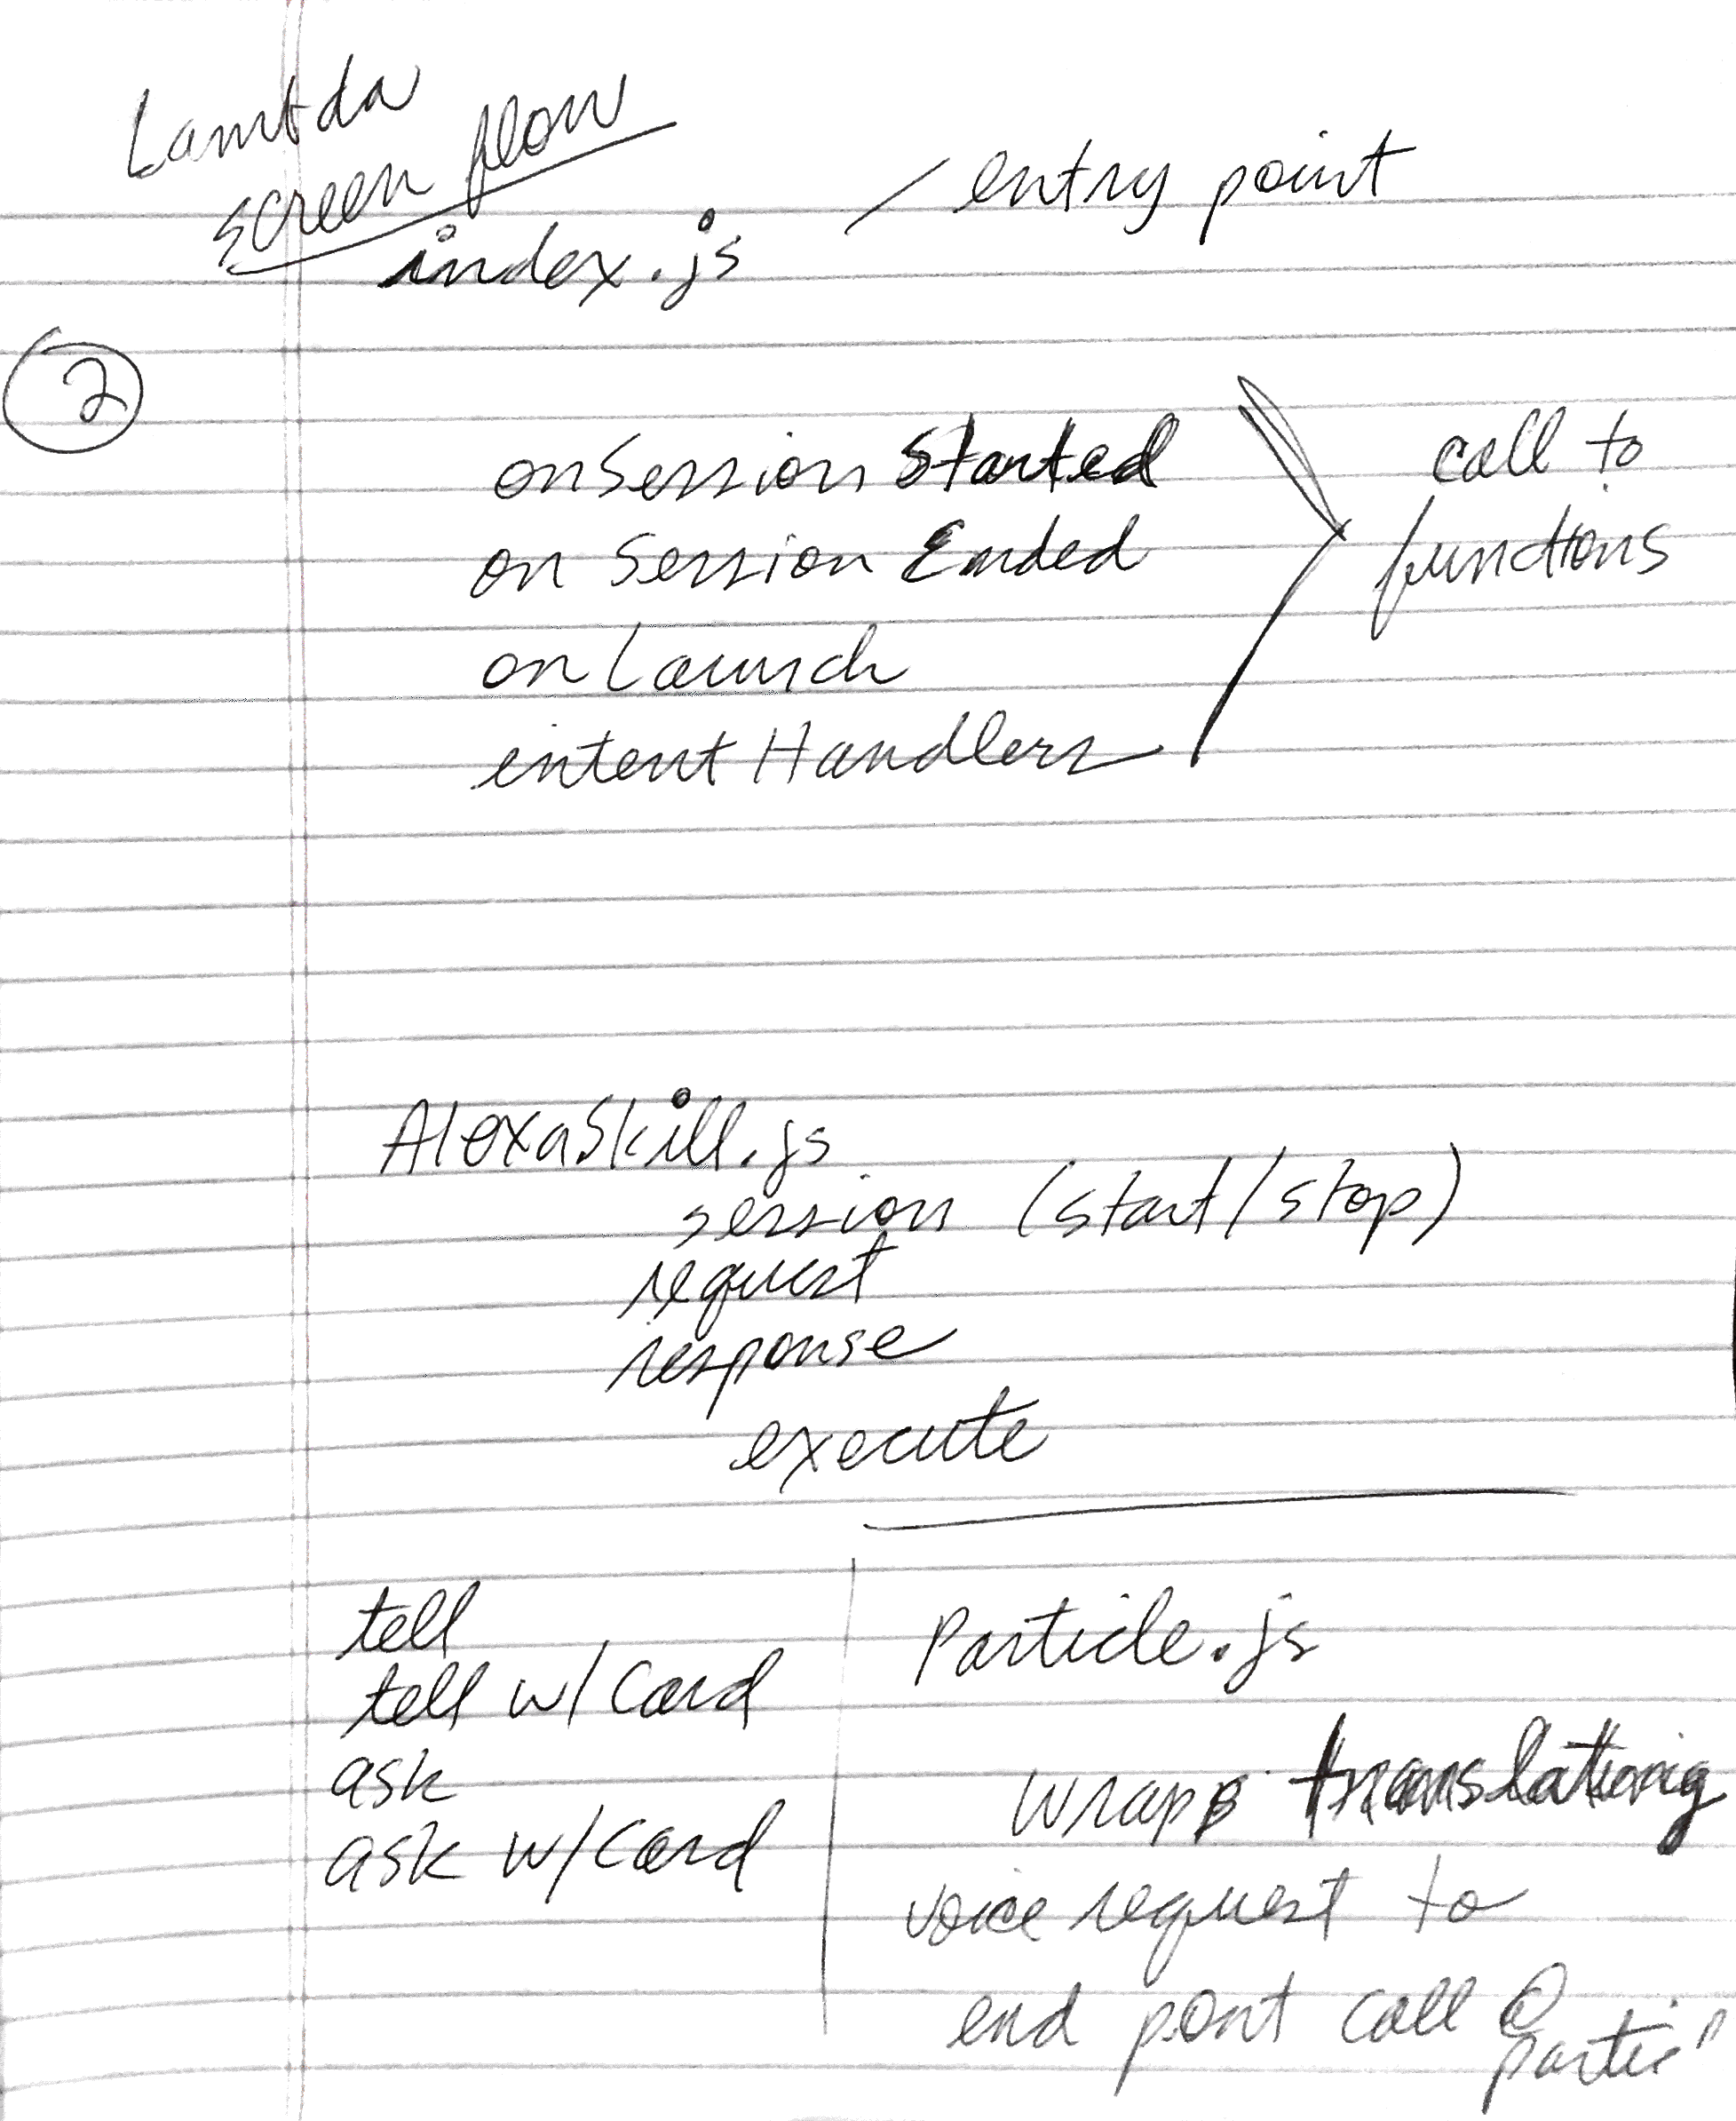 Lambda
screen flow
index.js / entry point
2
onSession Started
on Session Ended
on Launch
intent Handlers
call to
functions
AlexaSkill.js
session (start/stop)
request
response
execute
tell
tell w/Card
ask
ask w/Card
Particle.js
wraps translationig
voice request to
end pont call @
partic